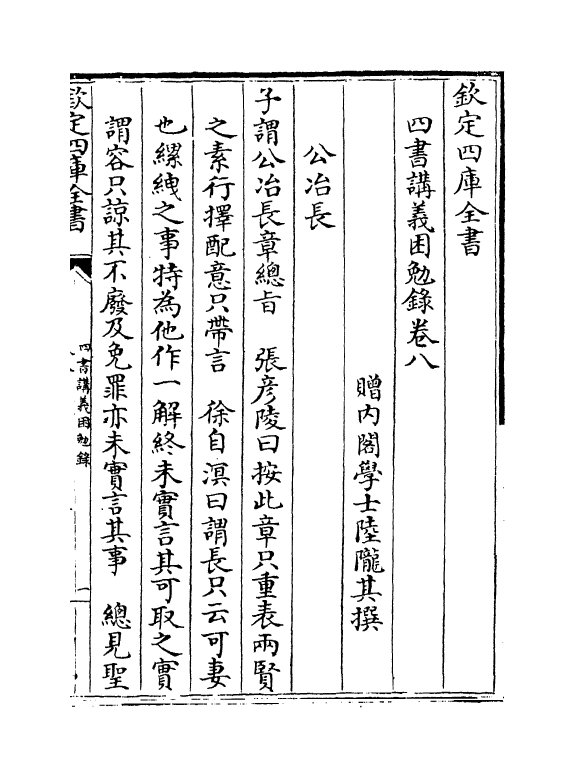 欽定四庫全書
四書講義困勉錄卷八
贈內閣學士陸隴其撰
公冶長
子謂公冶長章總旨　張彥陵曰按此章只重表兩賢
之素行擇配意只帶言　徐自溟曰謂長只云可妻
也縲絏之事特為他作一解終未實言其可取之實
謂容只諒其不廢及免罪亦未實言其事　總見聖
欽定四庫全書
四書講義困勉錄
一